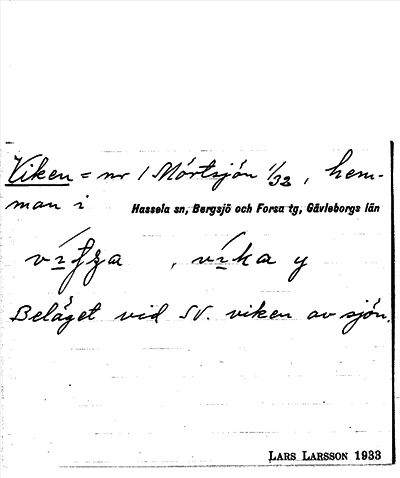 Viken = nr 1 Mörtsjön 1/32, hem-
man i Hassela sn, Bergsjö och Forsa tg, Gävleborgs län
, víka y
Beläget vid SV. viken av sjön.
LARS LARSSON 1933